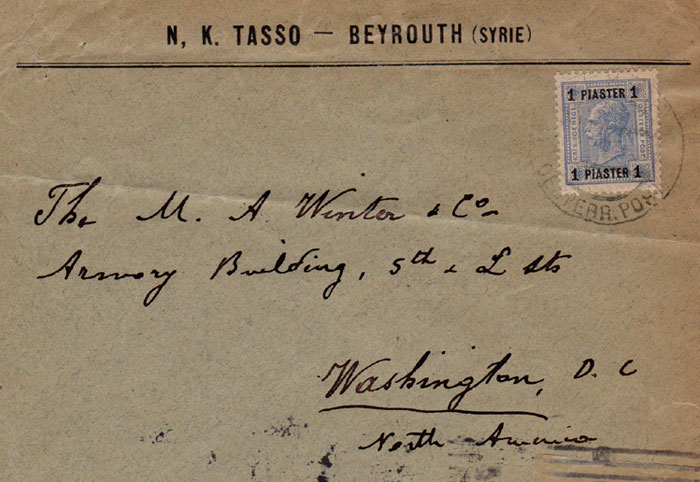 N. K. TASSO — BEYROUTH (SYRIE)
1 PIASTER 1
KAIS. KOENIGL.
OESTERR. POST
1 PIASTER 1
OESTERR. POST
The M. A. Winter & Co
Armory Building, 5th & L Sts
Washington, D. C
North America